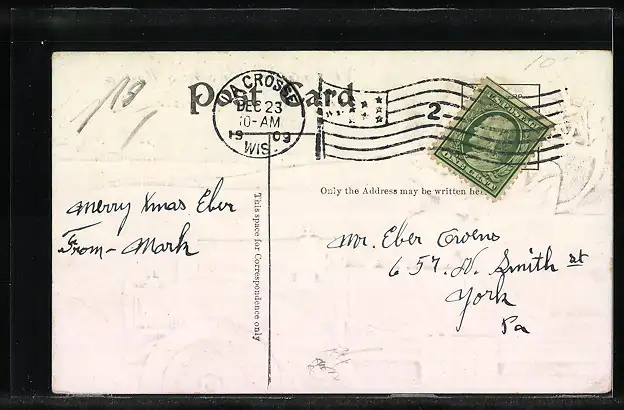 Post Card
LA CROSSE
DEC 23
10-AM
1909
WIS.
2
ONE CENT
Only the Address may be written here
This space for Correspondence only
Merry Xmas Eber
From - Mark
Mr. Eber Owens
657. N. Smith st
York
Pa